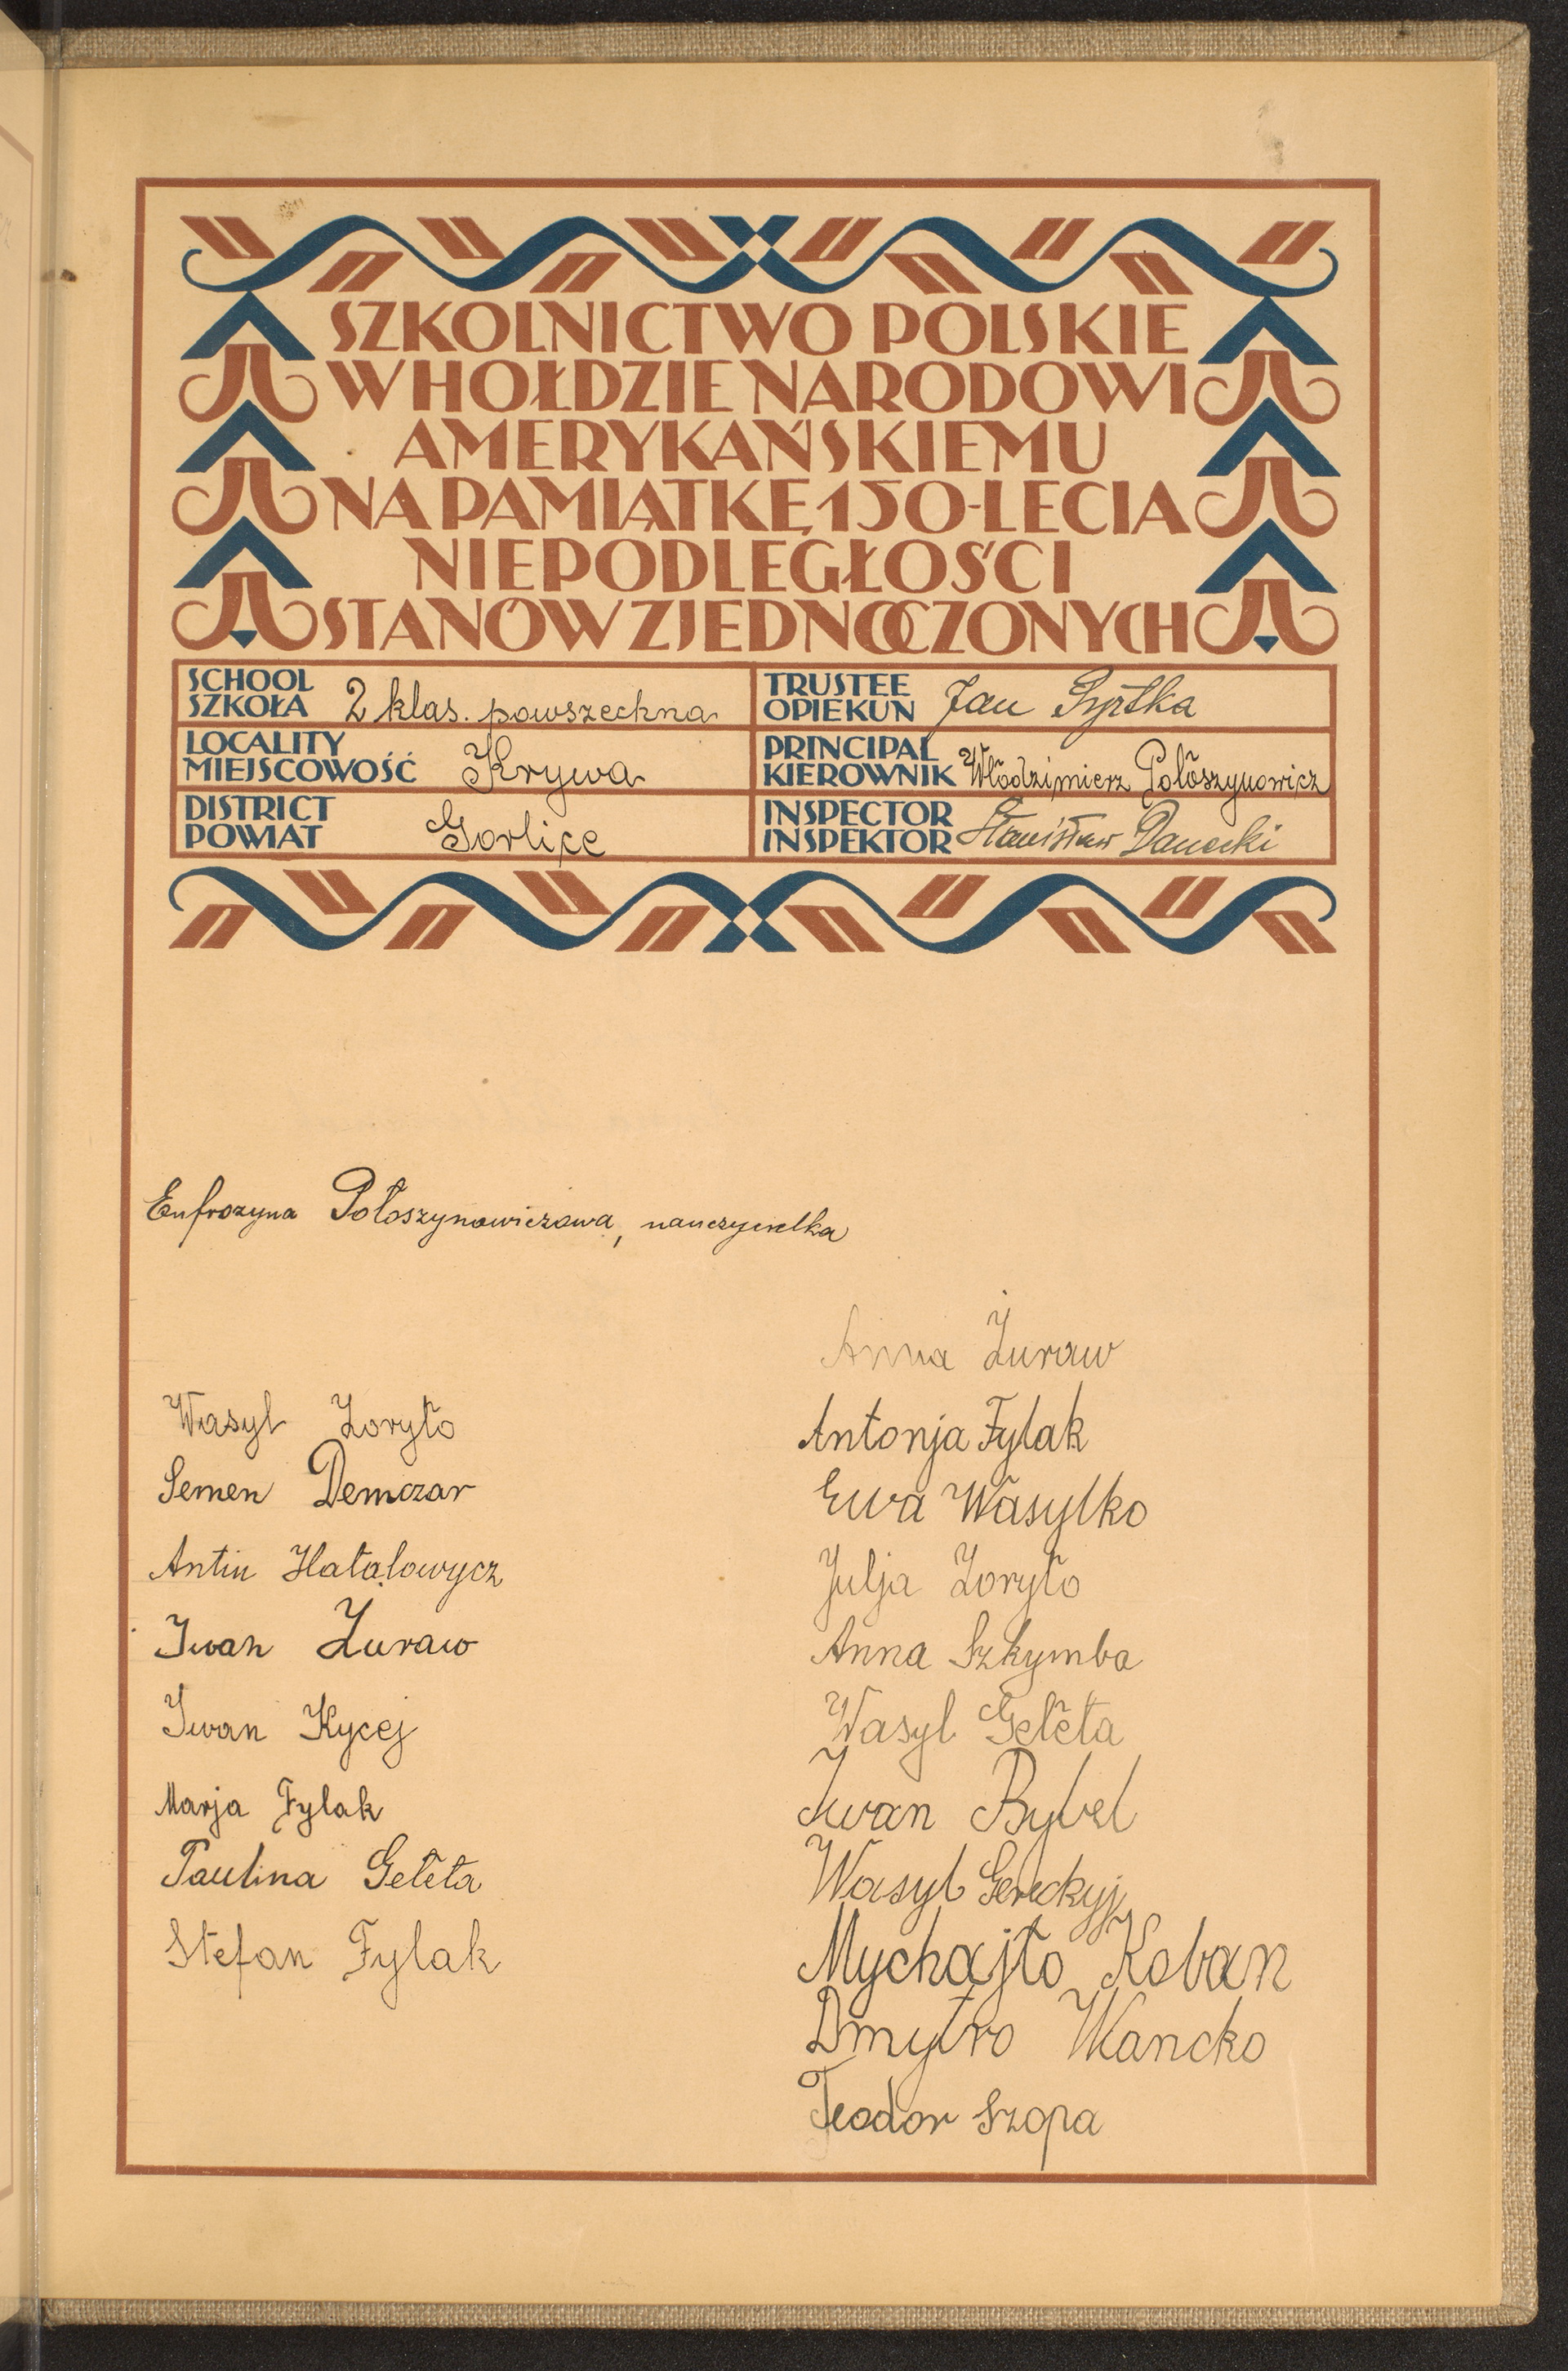 SZKOLNICTWO POLSKIE
W HOŁDZIE NARODOWI
AMERYKAŃSKIEMU
NA PAMIĄTKĘ 150-LECIA
NIEPODLEGŁOŚCI
STANÓW ZJEDNOCZONYCH
SCHOOL
SZKOŁA 2 klas. powszechna
TRUSTEE
OPIEKUN Jan
LOCALITY
MIEJSCOWOŚĆ Krywa
PRINCIPAL
KIEROWNIK Włodzimierz Połoszynowicz
DISTRICT
POWIAT Gorlice
INSPECTOR
INSPEKTOR Stanisław Danecki
Eufrozyna Połoszynowiczowa, nauczycielka
Wasyl Zoryło
Semen Demczar
Antin Hatalowycz
Iwan Żuraw
Iwan Kycej
Marja Fylak
Paulina Geleta
Stefan Fylak
Anna Żuraw
Antonja Fylak
Ewa Wasylko
Julja Zoryło
Anna Szkymba
Wasyl Geleta
Iwan Bybel
Wasyl Gereckyj
Mychajło Koban
Dmytro Wancko
Teodor Szopa